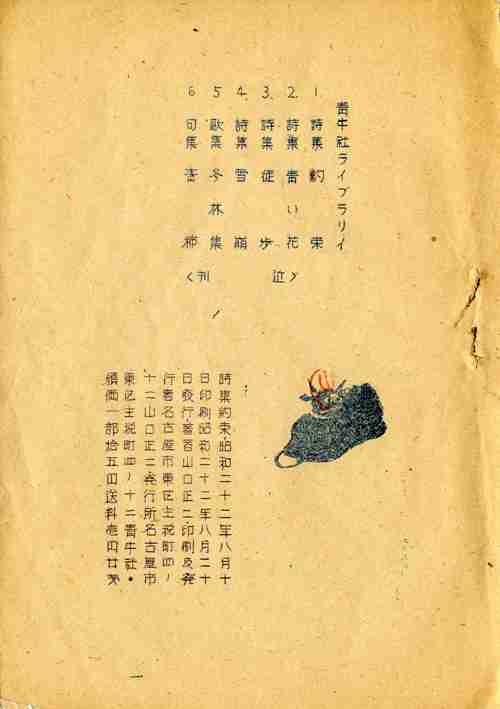 青牛社ライブラリイ
1. 詩集 約束
2. 詩集 青い花
3. 詩集 徒歩
4. 詩集 雪崩
5 歌集 冬林集
6 句集
(近刊)
詩集約束・昭和二十二年八月十
日印刷昭和二十二年八月二十
日発行著者山口正二印刷及発
行者名古屋市東区主税町四ノ
十二山口正二発行所名古屋市
東区主税町四ノ十二青牛社・
頒価一部拾五円送料壱円廿銭